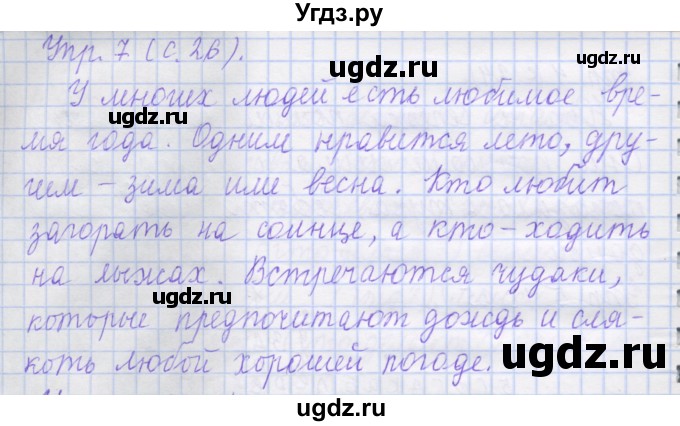 Угдз.ру
Упр. 7 (с. 26).
У многих людей есть любимое вре-
мя года. Одним нравится лето, дру-
гим – зима или весна. Кто любит
загорать на солнце, а кто – ходить
на лыжах. Встречаются чудаки,
которые предпочитают дождь и сля-
коть любой хорошей погоде.
ugdz.ru
ugdz.ru
ugdz.ru
ugdz.ru
ugdz.ru
ugdz.ru
ugdz.ru
ugdz.ru